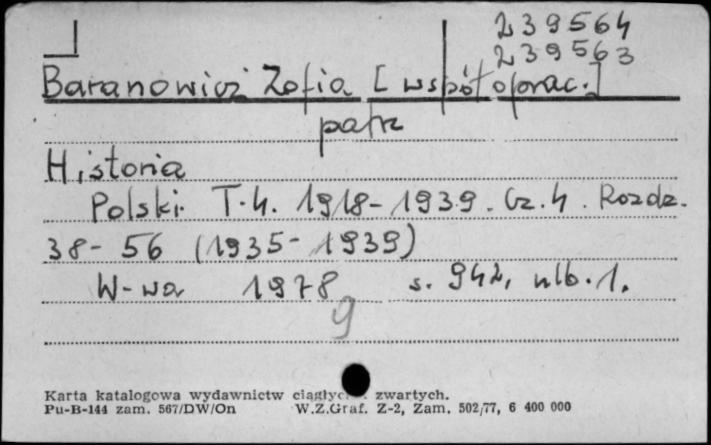 239564
239563
Baranowicz Zofia [współoprac.]
patrz
Historia
Polski. T.4. 1918-1939. Cz.4. Rozdz.
38-56 (1935-1939)
W-wa 1978 s. 942, nlb.1.
9
Karta katalogowa wydawnictw zwartych.
Pu-B-144 zam. 567/DW/On W.Z.Graf. Z-2, Zam. 502/77, 6 400 000